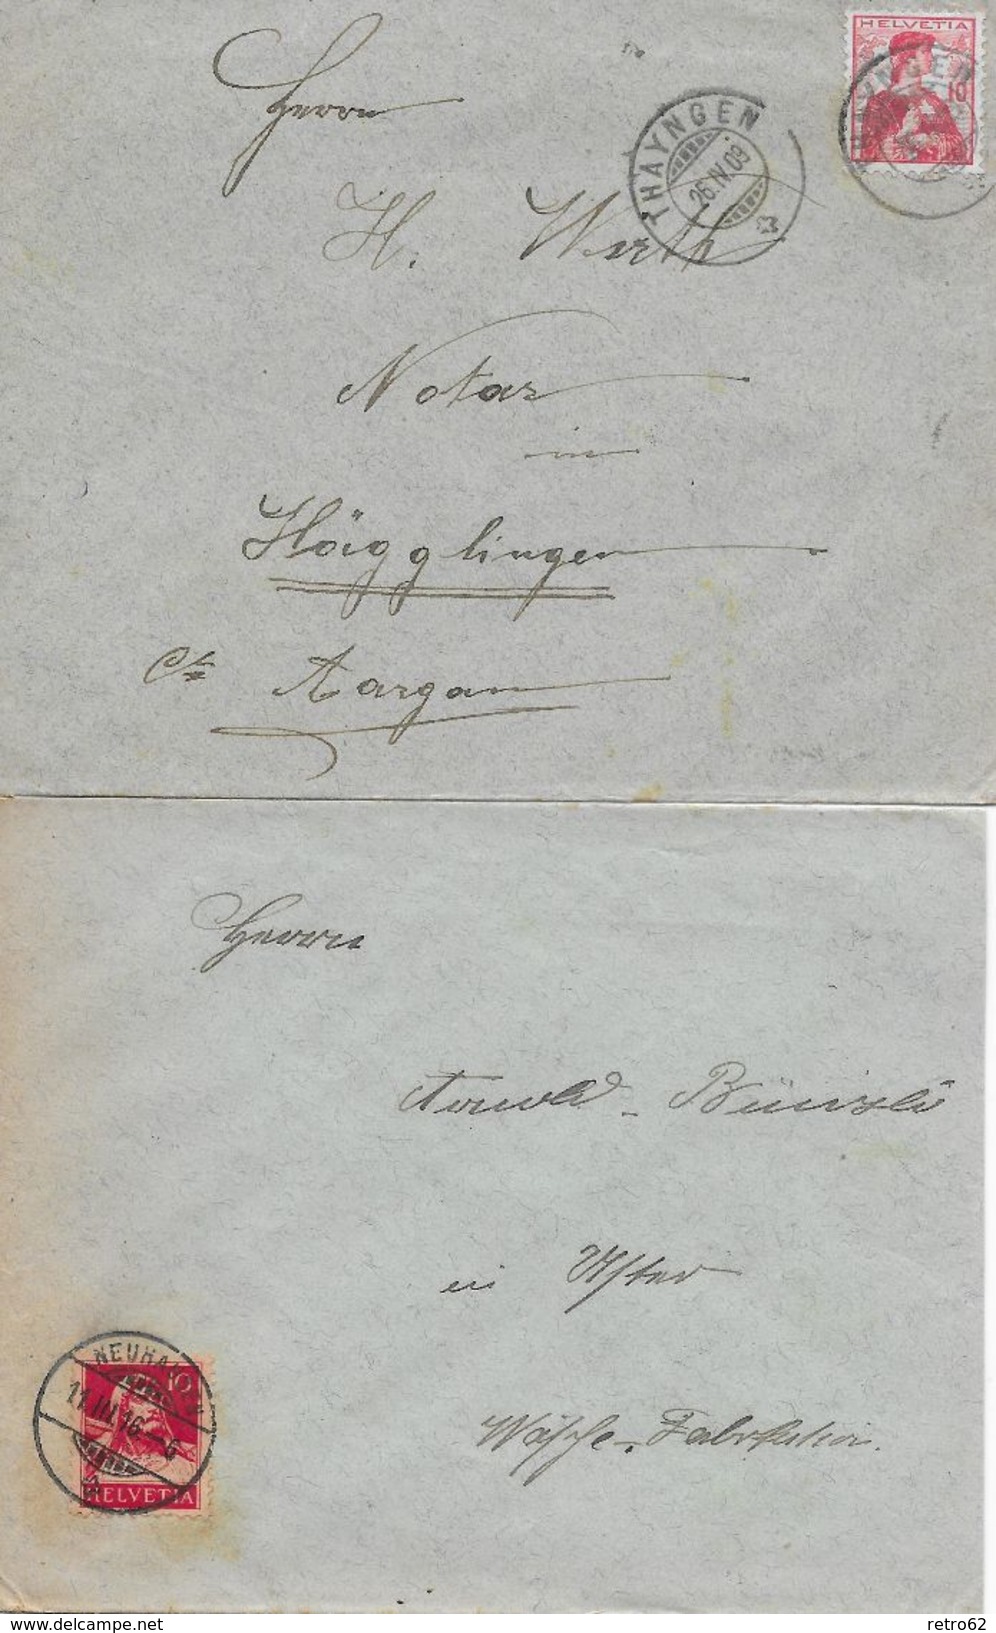 Herrn
H. Wirth
Notar
in
Hägglingen
Ct. Aargau
HELVETIA
10
THAYNGEN
26.IV.09
Herrn
Arnold - Bünzli
in Uster
Wäsche-Fabrikation.
NEUHAUSEN
11.III.16-6
10
HELVETIA
delcampe.net
retro62